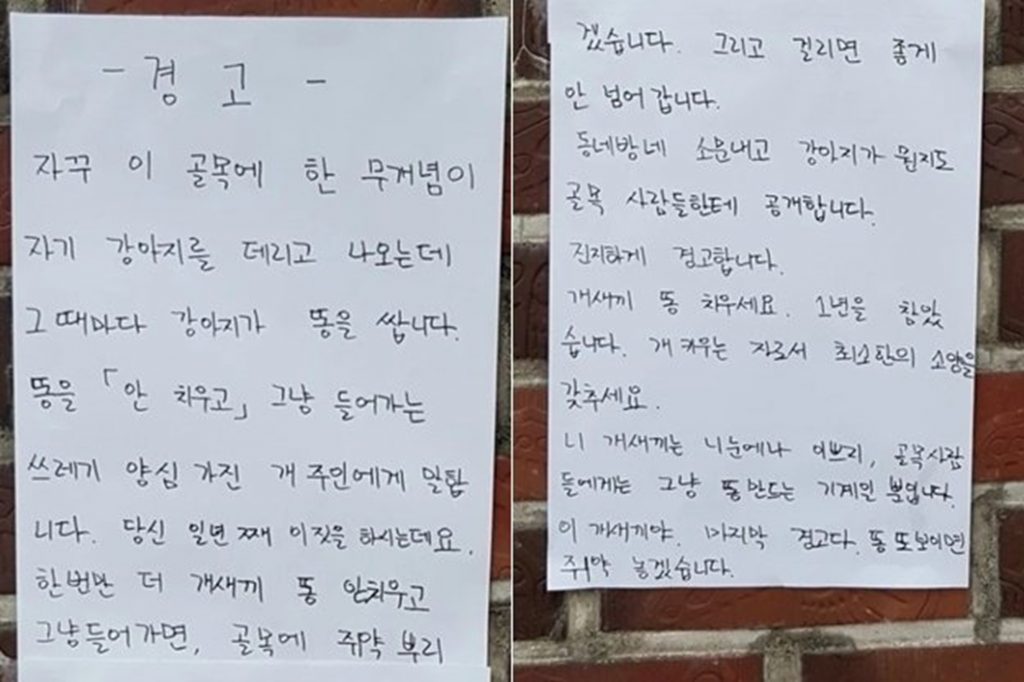 - 경 고 -
자꾸 이 골목에 한 무개념이
자기 강아지를 데리고 나오는데
그때마다 강아지가 똥을 쌉니다.
똥을 「안 치우고」 그냥 들어가는
쓰레기 양심 가진 개 주인에게 말합
니다. 당신 일년째 이짓을 하시는데요.
한번만 더 개새끼 똥 안치우고
그냥들어가면, 골목에 쥐약 뿌리
겠습니다. 그리고 걸리면 좋게
안 넘어갑니다.
동네방네 소문내고 강아지가 뭔지도
골목 사람들한테 공개합니다.
진지하게 경고합니다.
개새끼 똥 치우세요. 1년을 참았
습니다. 개 키우는 자로서 최소한의 소양을
갖추세요.
니 개새끼는 니눈에나 이쁘지, 골목사람
들에게는 그냥 똥만드는 기계일 뿐입니다.
이 개새끼야. 마지막 경고다. 똥 또보이면
쥐약 놓겠습니다.